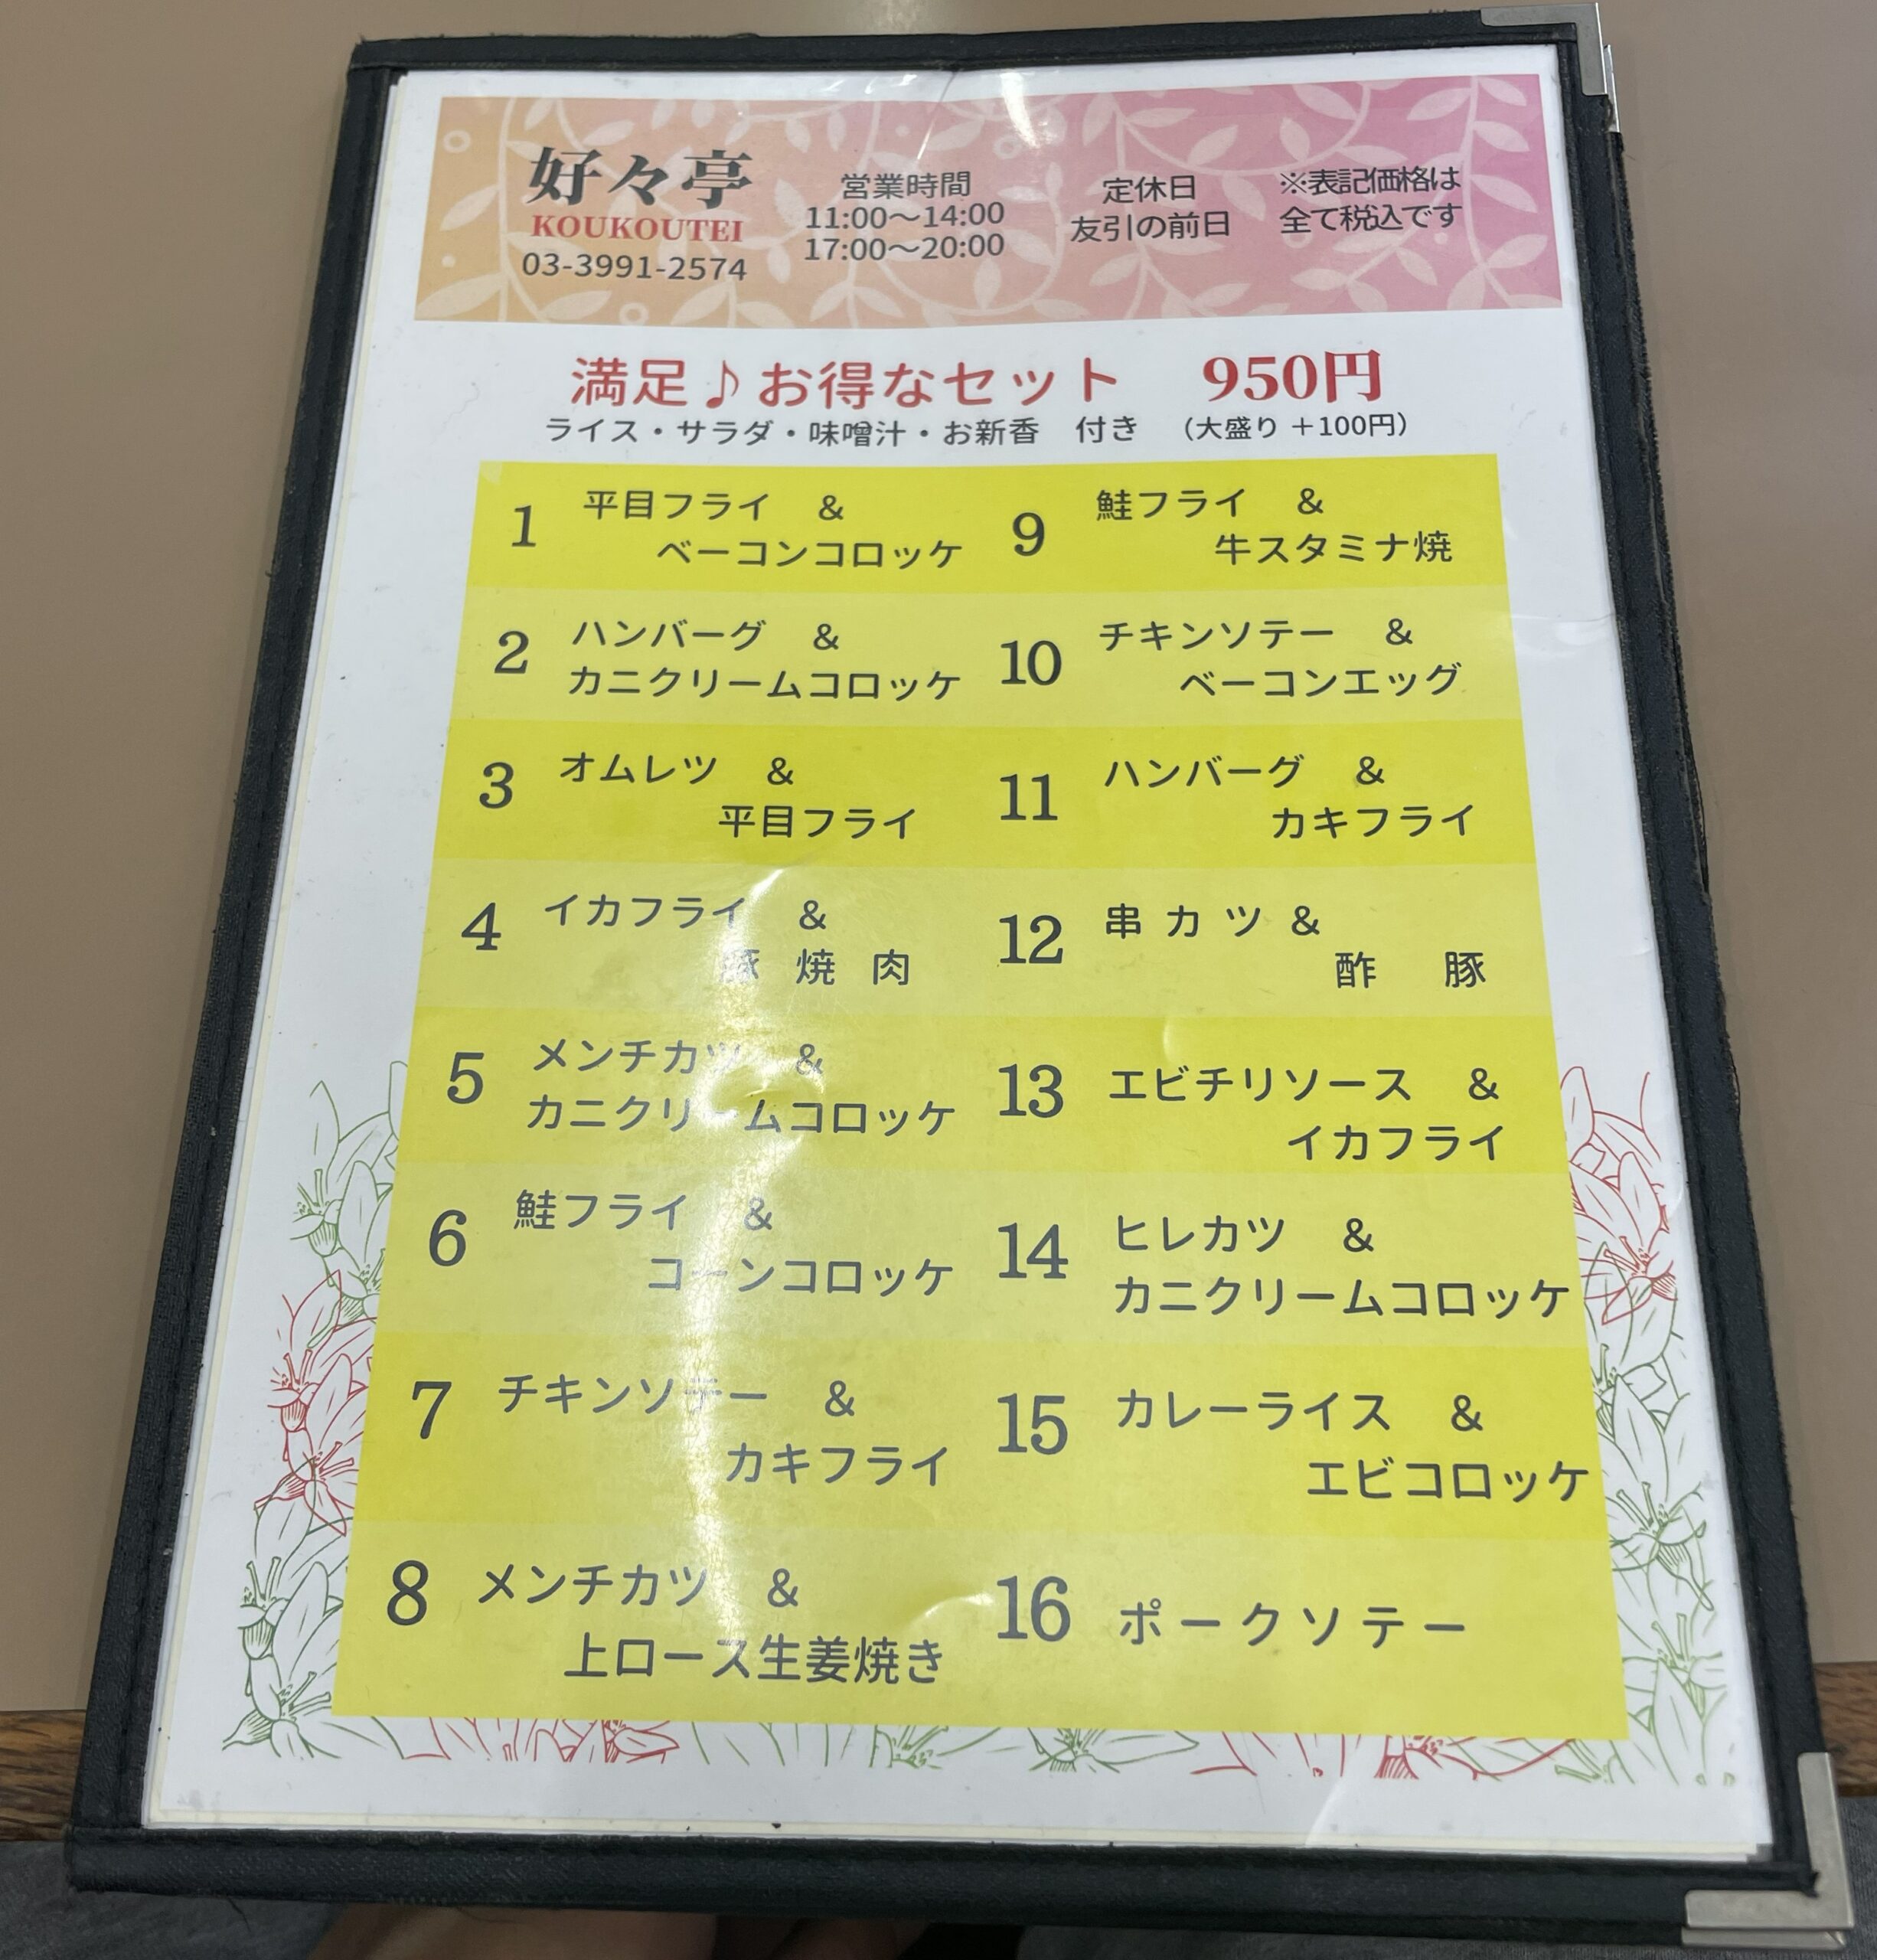 好々亭
KOUKOUTEI
03-3991-2574
営業時間
11:00～14:00
17:00～20:00
定休日
友引の前日
※表記価格は
全て税込です
満足♪お得なセット 950円
ライス・サラダ・味噌汁・お新香 付き （大盛り ＋100円）
1 平目フライ ＆
ベーコンコロッケ
2 ハンバーグ ＆
カニクリームコロッケ
3 オムレツ ＆
平目フライ
4 イカフライ ＆
豚 焼 肉
5 メンチカツ ＆
カニクリームコロッケ
6 鮭フライ ＆
コーンコロッケ
7 チキンソテー ＆
カキフライ
8 メンチカツ ＆
上ロース生姜焼き
9 鮭フライ ＆
牛スタミナ焼
10 チキンソテー ＆
ベーコンエッグ
11 ハンバーグ ＆
カキフライ
12 串 カ ツ ＆
酢 豚
13 エビチリソース ＆
イカフライ
14 ヒレカツ ＆
カニクリームコロッケ
15 カレーライス ＆
エビコロッケ
16 ポークソテー